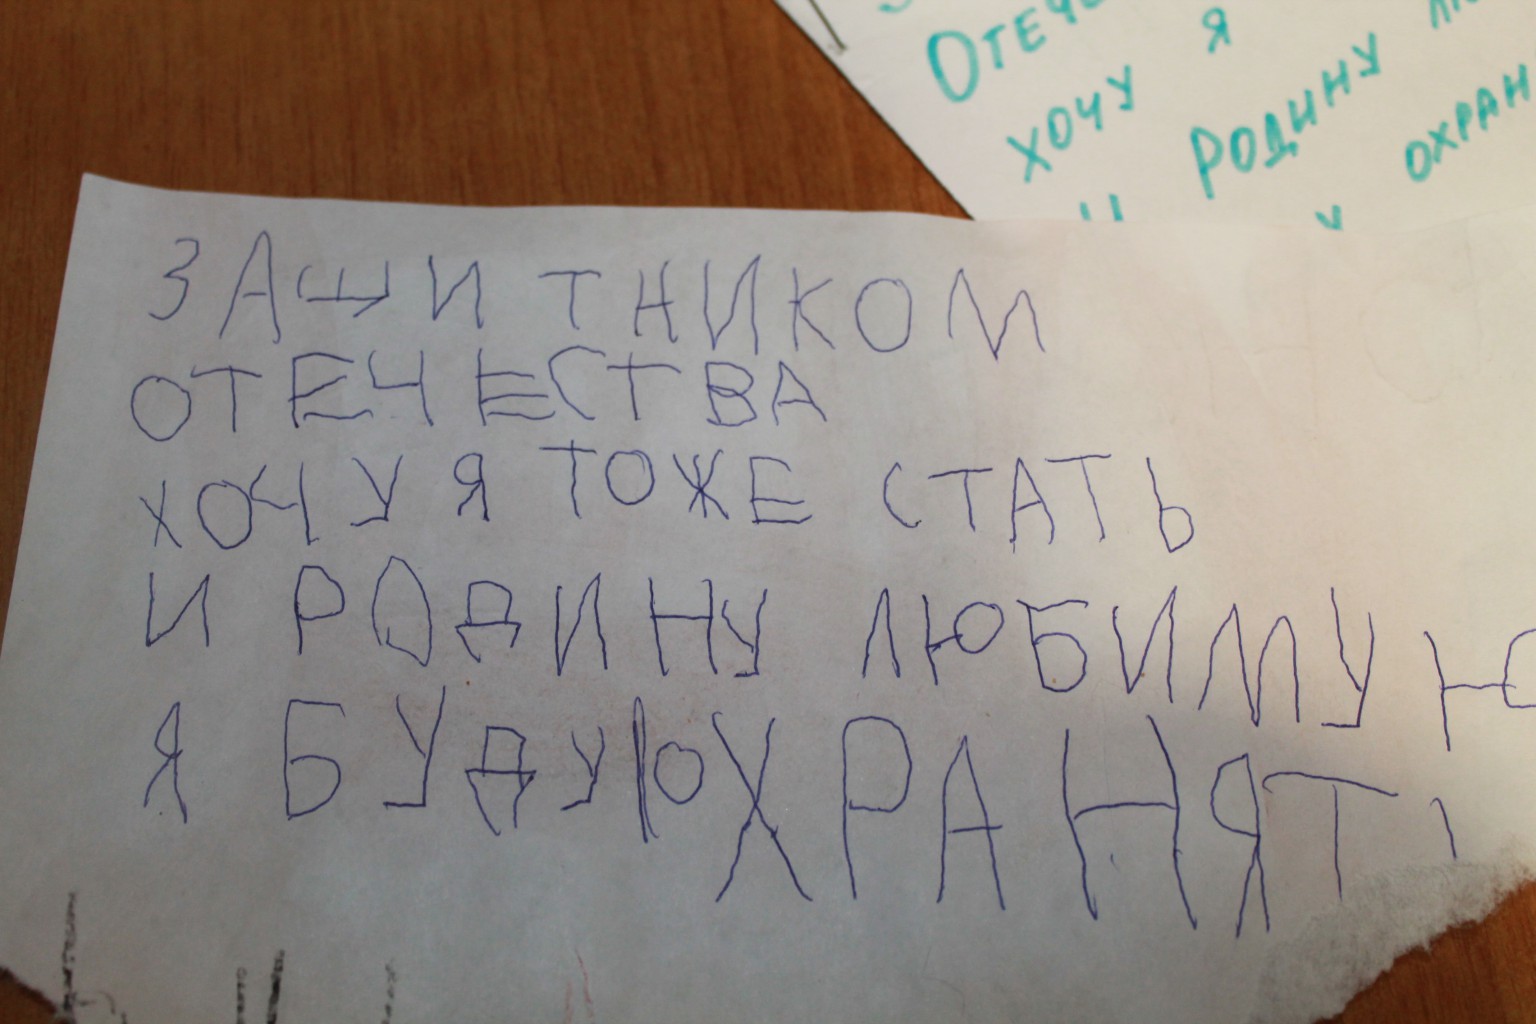 Отече
хочу я
Родину лю
охран
ЗАЩИТНИКОМ
ОТЕЧЕСТВА
ХОЧУ Я ТОЖЕ СТАТЬ
И РОДИНУ ЛЮБИМУЮ
Я БУДУ ОХРАНЯТЬ